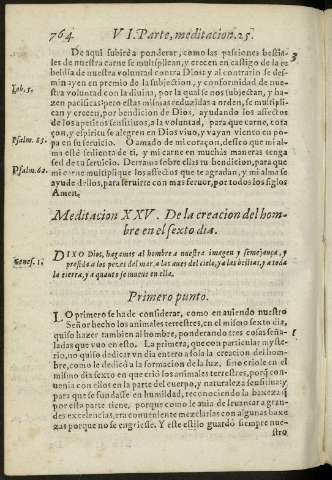 764. VI. Parte, meditacion. 25.
De aqui subirè a ponderar, como las passiones bestia-
les de nuestra carne se multiplican, y crecen en castigo de la re
beldia de nuestra voluntad contra Dios: y al contrario se des-
minuyen en premio de la subjeccion, y conformidad de nue-
Iob. 5. stra voluntad con la diuina, por la qual se nos subjectan, y ha-
zen pacificas: pero estas mismas reduzidas a orden, se multipli-
can y crecen, por bendicion de Dios, ayudando los affectos
de los apetitos sensitiuos, a la voluntad, para que carne, cora
Psalm. 83. çon, y espiritu se alegren en Dios viuo, y vayan viento en po-
pa en su seruicio. O amado de mi coraçon, desseo que mi al-
Psalm. 62. ma estè sedienta de ti, y mi carne en muchas maneras tenga
sed de tu seruicio. Derrama sobre ellas tu bendicion, para que
mi carne multiplique los affectos que te agradan, y mi alma se
ayude dellos, para seruirte con mas feruor, por todos los siglos
Amen.
Meditacion XXV. De la creacion del hom-
bre en el sexto dia.
Genes. 1. DIXO Dios, hagamos al hombre a nuestra imagen y semejança, y
presida a los pezes del mar, a las aues del cielo, y a las bestias, y a toda
la tierra, y a quanto se mueue en ella.
Primero punto.
LO primero se ha de considerar, como en auiendo nuestro
Señor hecho los animales terrestres, en el mismo sexto dia,
quiso hazer tambien al hombre, ponderando tres cosas seña-
ladas que vuo en esto. La primera, que con particular myste-
rio, no quiso dedicar vn dia entero a sola la creacion del hom-
bre, como le dedicò a la formacion de la luz, sino criole en el
mismo dia sexto en que criò los animales terrestres, porq̃ con-
uenia con ellos en la parte del cuerpo, y naturaleza sensitiua: y
para que se fundasse en humildad, reconociendo la baxeza q̃
por esta parte tiene, porque como le auia de leuantar a gran-
des excelencias, era conueniente mezclarlas con algunas baxe
zas porque no se engriesse. Y este estilo guardò siempre nue-
stro